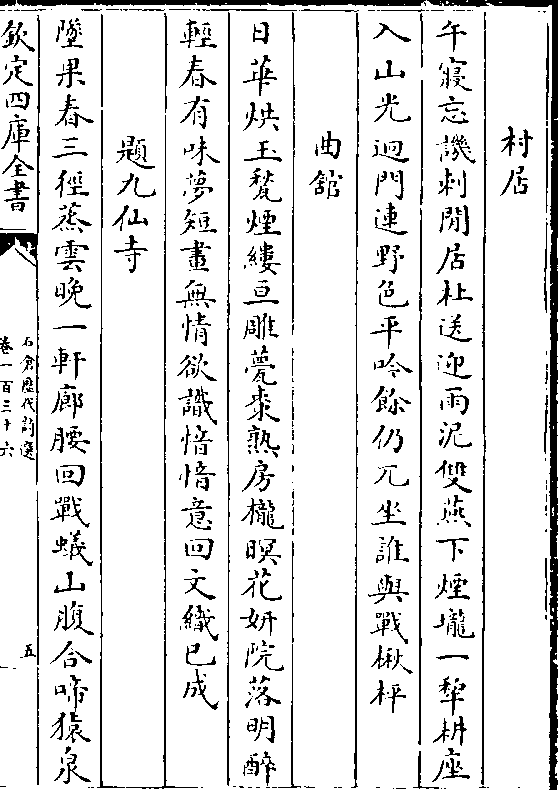 村居
午寢忘譏刺閒居杜送迎雨泥雙燕下煙壠一犂耕座
入山光迥門連野色平吟餘仍兀坐誰與戰楸枰
曲舘
日華烘玉甃煙縷亘雕甍棗熟房櫳暝花妍院落明酔
輕春有味夢短晝無情欲識愔愔意回文織已成
題九仙寺
墜果春三徑蒸雲晚一軒廊腰回戰蟻山腹合啼猿泉
欽定四庫全書
石倉歷代詩選
卷一百三十六
五